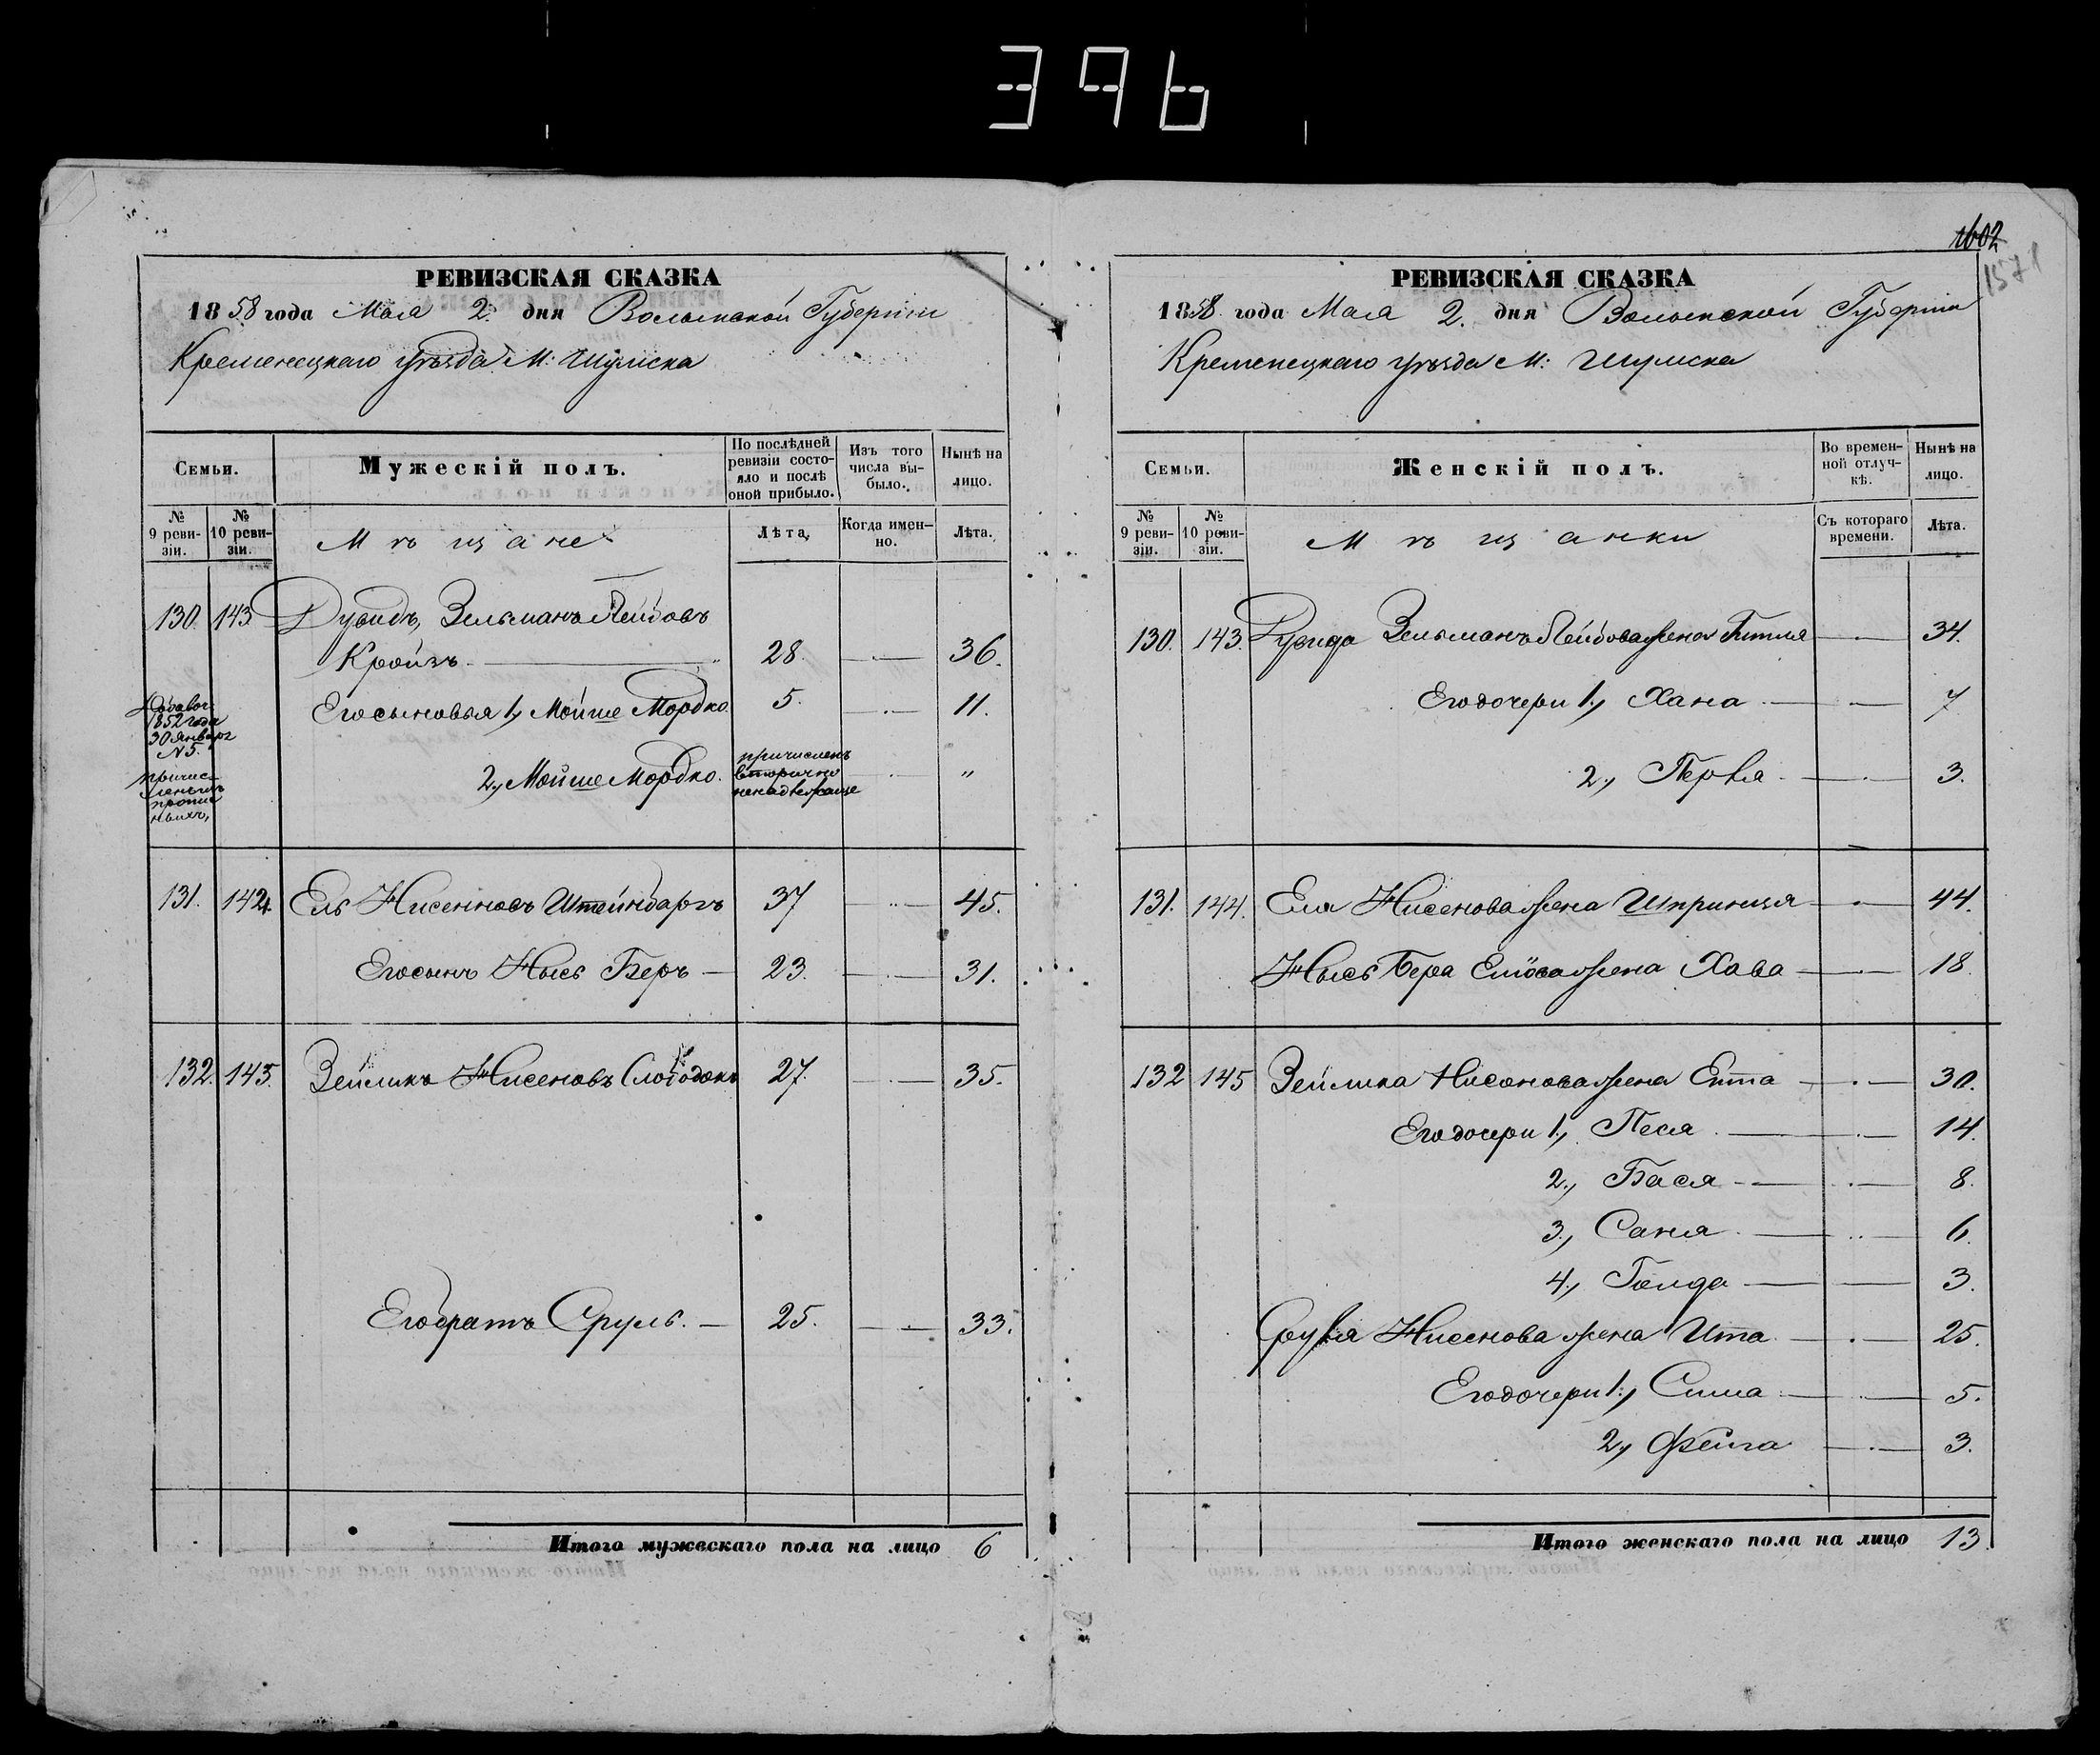 396
1602
1571
РЕВИЗСКАЯ СКАЗКА
1858 года Мая 2. дня Волынской Губернiи
Кременецкаго уѣзда М: Шумска
Семьи.
Мужескiй полъ.
По послѣдней ревизiи состояло и послѣ оной прибыло.
Изъ того числа выбыло.
Нынѣ на лицо.
№ 9 ревизiи.
№ 10 ревизiи.
Мѣщане
Лѣта,
Когда именно.
Лѣта.
130. 143 Дувидъ, Зельманъ Лейбовъ
Кройзъ. 28. 36.
Его сыновья 1, Мойше Мордко. 5. 11.
Добавоч
1852 года
30 Января
N 5.
причис-
леныхъ
пропис
ныхъ,
2, Мойше Мордко. причисленъ вторично ненадлежаще "
131. 144. Ель Нисенновъ Штейнбаргъ 37 45.
Его сынъ Нысь Беръ 23. 31.
132. 145. Зейликъ Нисеновъ Слободокъ 27. 35.
Его братъ Сруль. 25. 33.
Итого мужескаго пола на лицо 6
РЕВИЗСКАЯ СКАЗКА
1858. года Мая 2. дня Волынской Губернiи
Кременецкаго уѣзда М: Шумска
Семьи.
Женскiй полъ.
Во временной отлучкѣ.
Нынѣ на лицо.
№ 9 ревизiи.
№ 10 ревизiи.
Мѣщанки
Съ котораго времени.
Лѣта.
130. 143. Дувида Зельмана Лейбова жена Гитля 34.
Его дочери 1, Хана 7
2, Перля 3.
131. 144. Еля Нисенова жена Шпринця 44.
Нысь Бера Елiова жена Хава 18
132 145 Зейлика Нисенова жена Ента 30.
Его дочери 1, Песя 14.
2, Бася 8.
3, Сана 6.
4, Голда 3.
Сруля Нисенова жена Ита 25.
Его дочери 1, Сима 5.
2, Фейга 3.
Итого женскаго пола на лицо 13.